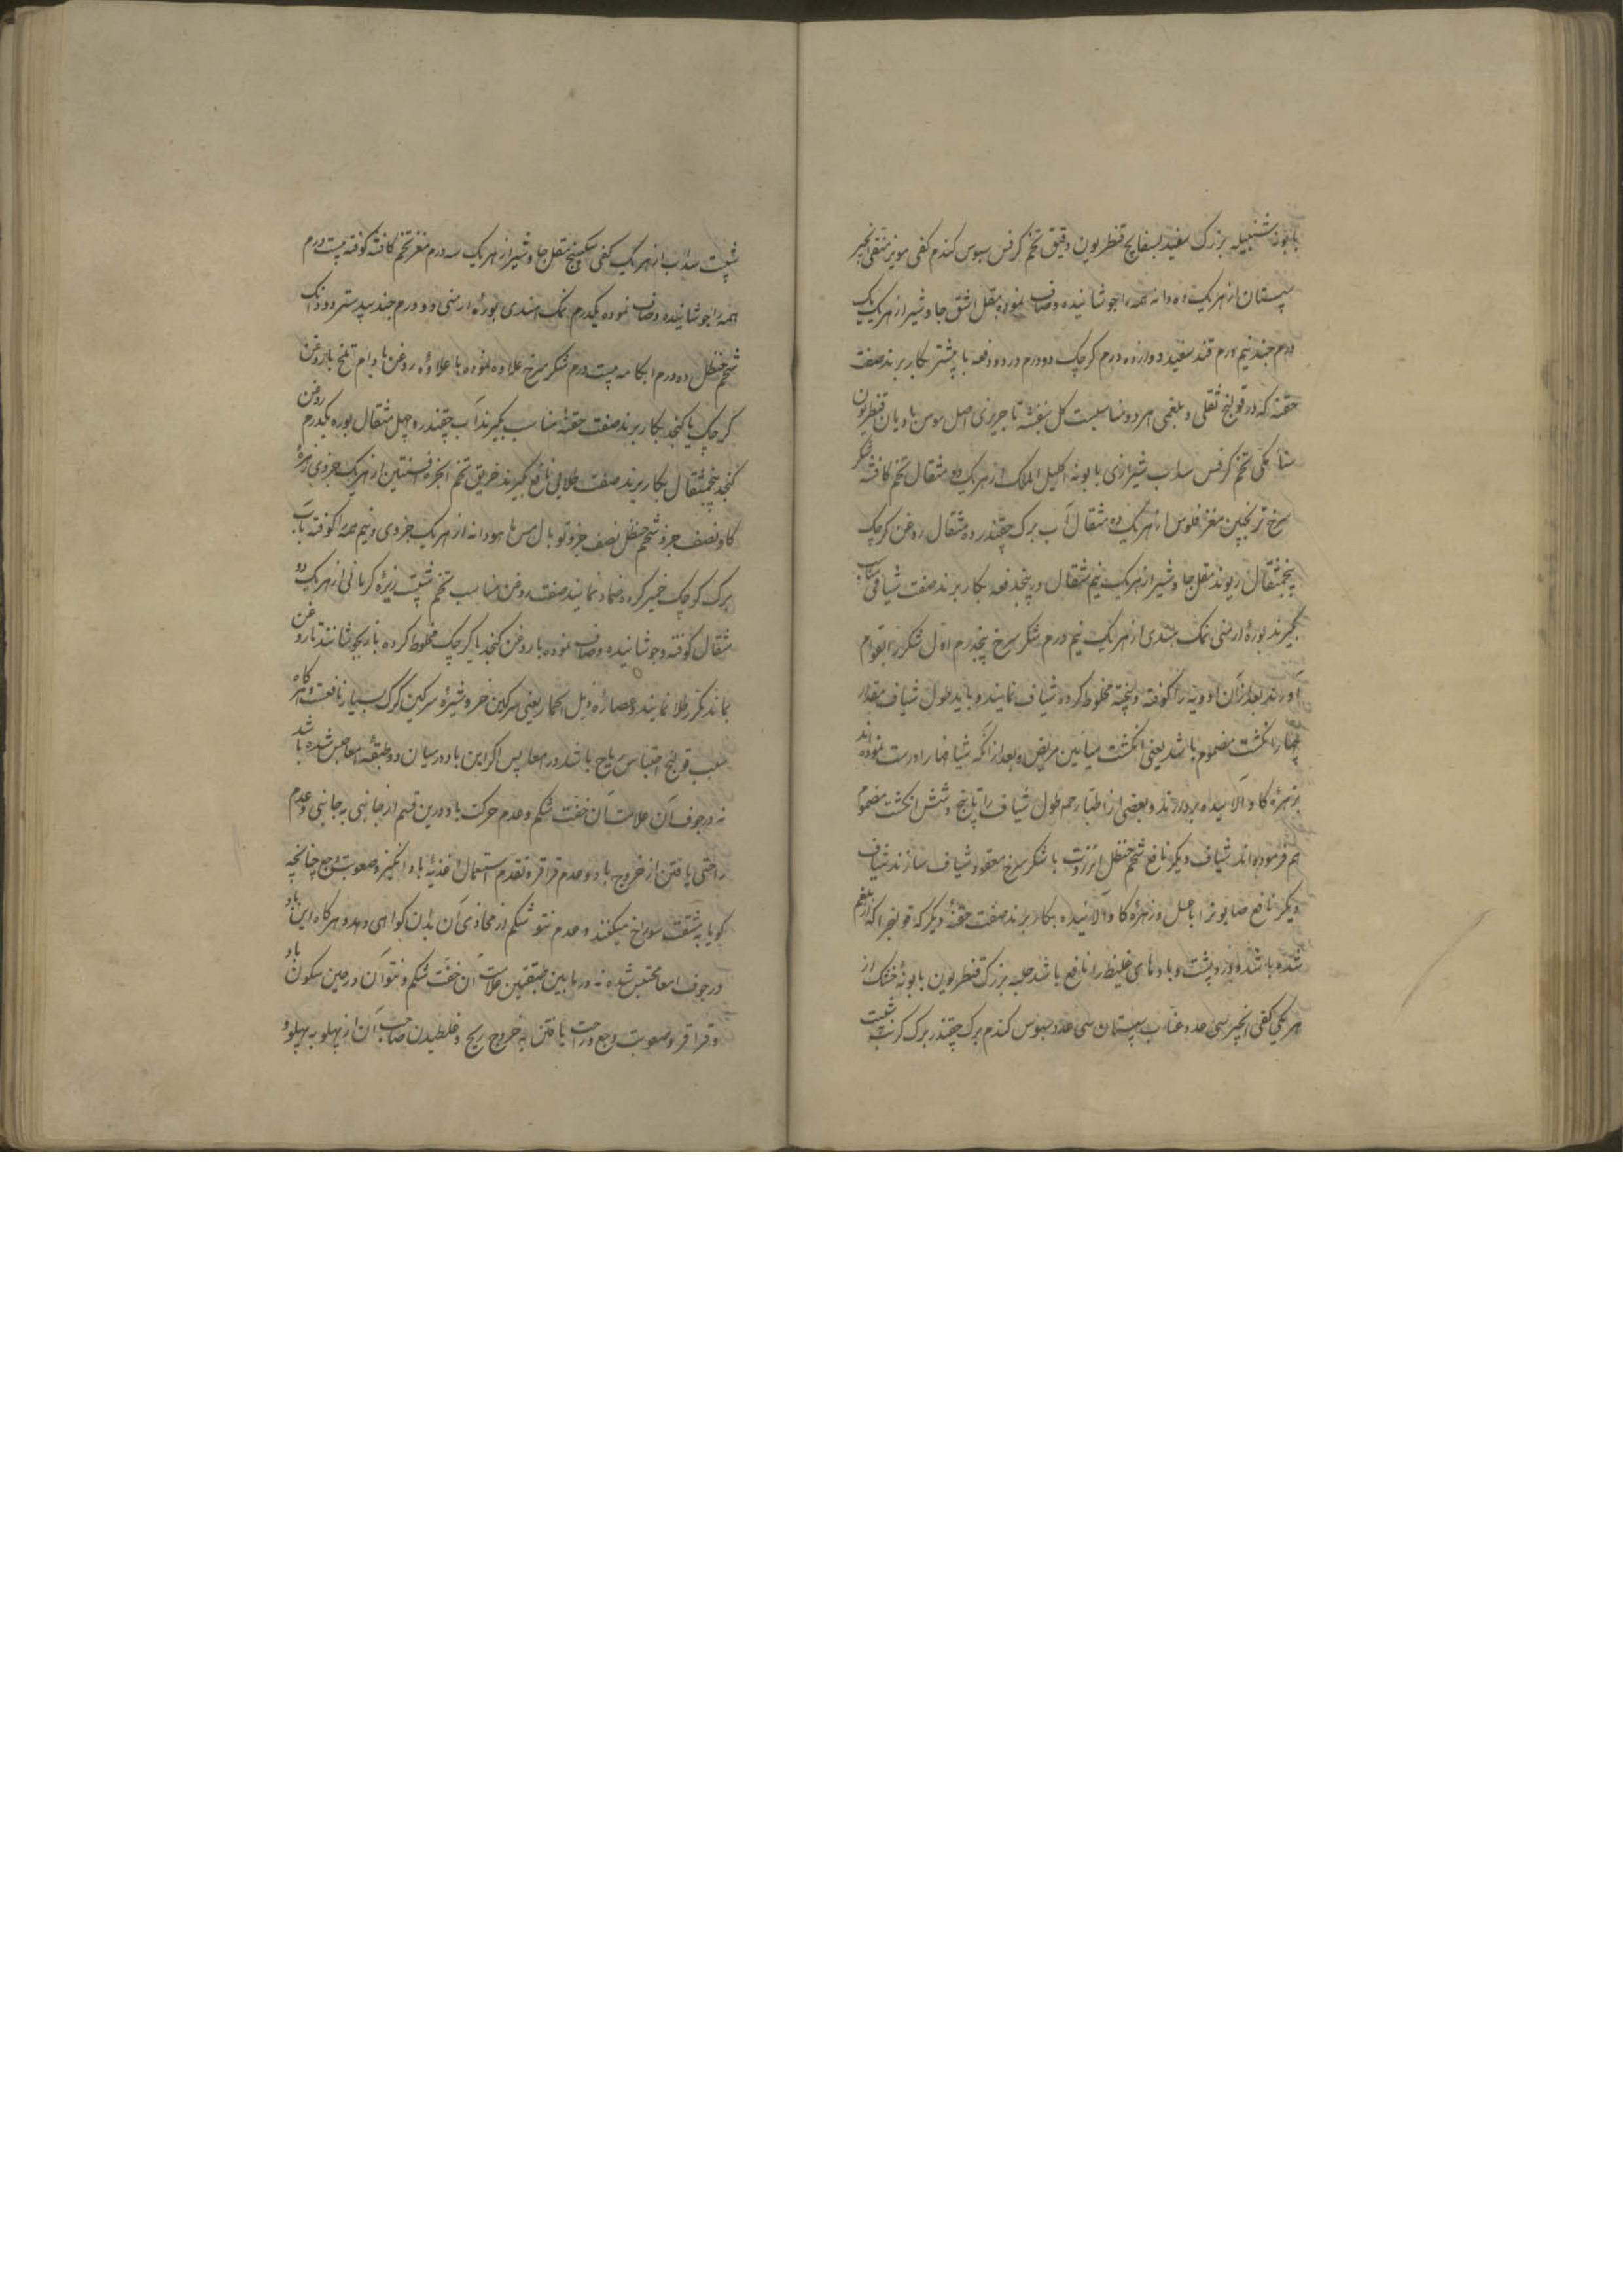 بابونه شنبلیله بزرک سفید بسفایج قنطریون دقیق تخم کرفس سبوس کندم کفی مویز منقی انجیر
سپستان از هر یک ده دانه همه را جوشانیده و صاف نموده مقل اشق جاوشیر از هر یک یک
درم جند نیم درم قند سفید دوازده درم کرچک دو درم در دو دفعه با پیشتر بکار برند صفت
حقنه که در قولنج ثفلی و بلغمی هر دو مناسبست کل بنفشه تاجریزی اصل سوس بادیان قنطریون
سنا مکی تخم کرفس سداب شیرازی بابونه اکلیل الملک از هر یک دو مثقال تخم کافشه شکر
سرخ ترنجبین مغز فلوس از هر یک ده مثقال آب برک چقندر ده مثقال روغن کرچک
پنجمثقال ریوند مقل جاوشیر از هر یک نیم مثقال در پنجدفعه بکار برند صفت شیافی مناسب
بکیرند بوره ارمنی نمک هندی از هر یک نیم درم شکر سرخ پنجدرم اول شکر را بقوام
آورند بعد از آن ادویه را کوفته و پخته مخلوط کرده شیاف نمایند و باید طول شیاف مقدار
چهار انکشت مضموم باشد یعنی انکشت میانین مریض و بعد از آنکه شیافها را درست نموده اند
بزهره کاو آلانیده بردارند و بعضی از اطبا رحمه طول شیاف را تا پنج و شش انکشت مضموم
هم فرموده اند شیاف دیکر نافع شحم حنظل انزروت با شکر سرخ معقود شیاف سازند شیاف
دیکر نافع صابونرا با عسل و زهره کاو آلانیده بکار برند صفت حقنه دیکر که قولنجرا که از بلغم
شده باشد و درد پشت و بادهای غلیظ را نافع باشد حلبه بزرک قنطریون بابونه خشک از
هر یکی کفی انجیر سی عدد عناب سپستان سی عدد سبوس کندم برک چقندر برک کرنب شبت
شبت سداب از هر یک کفی سکبینج مقل جاوشیر از هر یک سه درم مغز تخم کافشه کوفته بیست درم
همه را جوشانیده و صاف نموده یکدرم نمک هندی بوره ارمنی دو درم جند بیدستر دو دانک
شحم حنظل ده درم ابکامه بیست درم شکر سرخ علاوه نموده با علاوه روغن بادام تلخ یا روغن
کرچک یا کنجد بکار برند صفت حقنه مناسب بکیرند آب چقندر چهل مثقال بوره یکدرم روغن
کنجد پنجمثقال بکار برند صفت طلایی نافع بکیرند خربق تخم انجره افسنتین از هر یک جزوی زهره
کاو نصف جزو شحم حنظل نصف جزو توبال مس ماهودانه از هر یک جزوی و نیم همه را کوفته بآب
برک کوچک خمیر کرده ضماد نمایند صفت روغن مناسب تخم شبت زیره کرمانی از هر یک دو
مثقال کوفته و جوشانیده و صاف نموده با روغن کنجد یا کرچک مخلوط کرده باز بجوشانند تا روغن
بماند کرم طلا نمایند و عصاره زبل الحمار یعنی سرکین خر و شیره سرکین کرک بسیار نافعست و هر کاه
سبب قولنج احتباس ریاح باشد در امعا پس اکر این باد در میان دو طبقه امعا حبس شده باشد
نه در جوف آن علامت آن خفت شکم و عدم حرکت باد درین قسم از جانبی به جانبی و عدم
راحتی یافتن از خروج باد و عدم قراقر و تقدم استعمال اغذیه باد انکیز و صعوبت وجع چنانچه
کویا به مشقت سوراخ میکنند و عدم نتو شکم از محاذی آن بدان کواهی دهد و هر کاه این باد
در جوف امعا محتبس شده نه در مابین طبقتین علامت آن خفت شکم و نتو آن در حین سکون باد
و قراقر و صعوبت وجع و راحت یافتن به خروج ریح و غلطیدن صاحب آن از پهلو به پهلو و